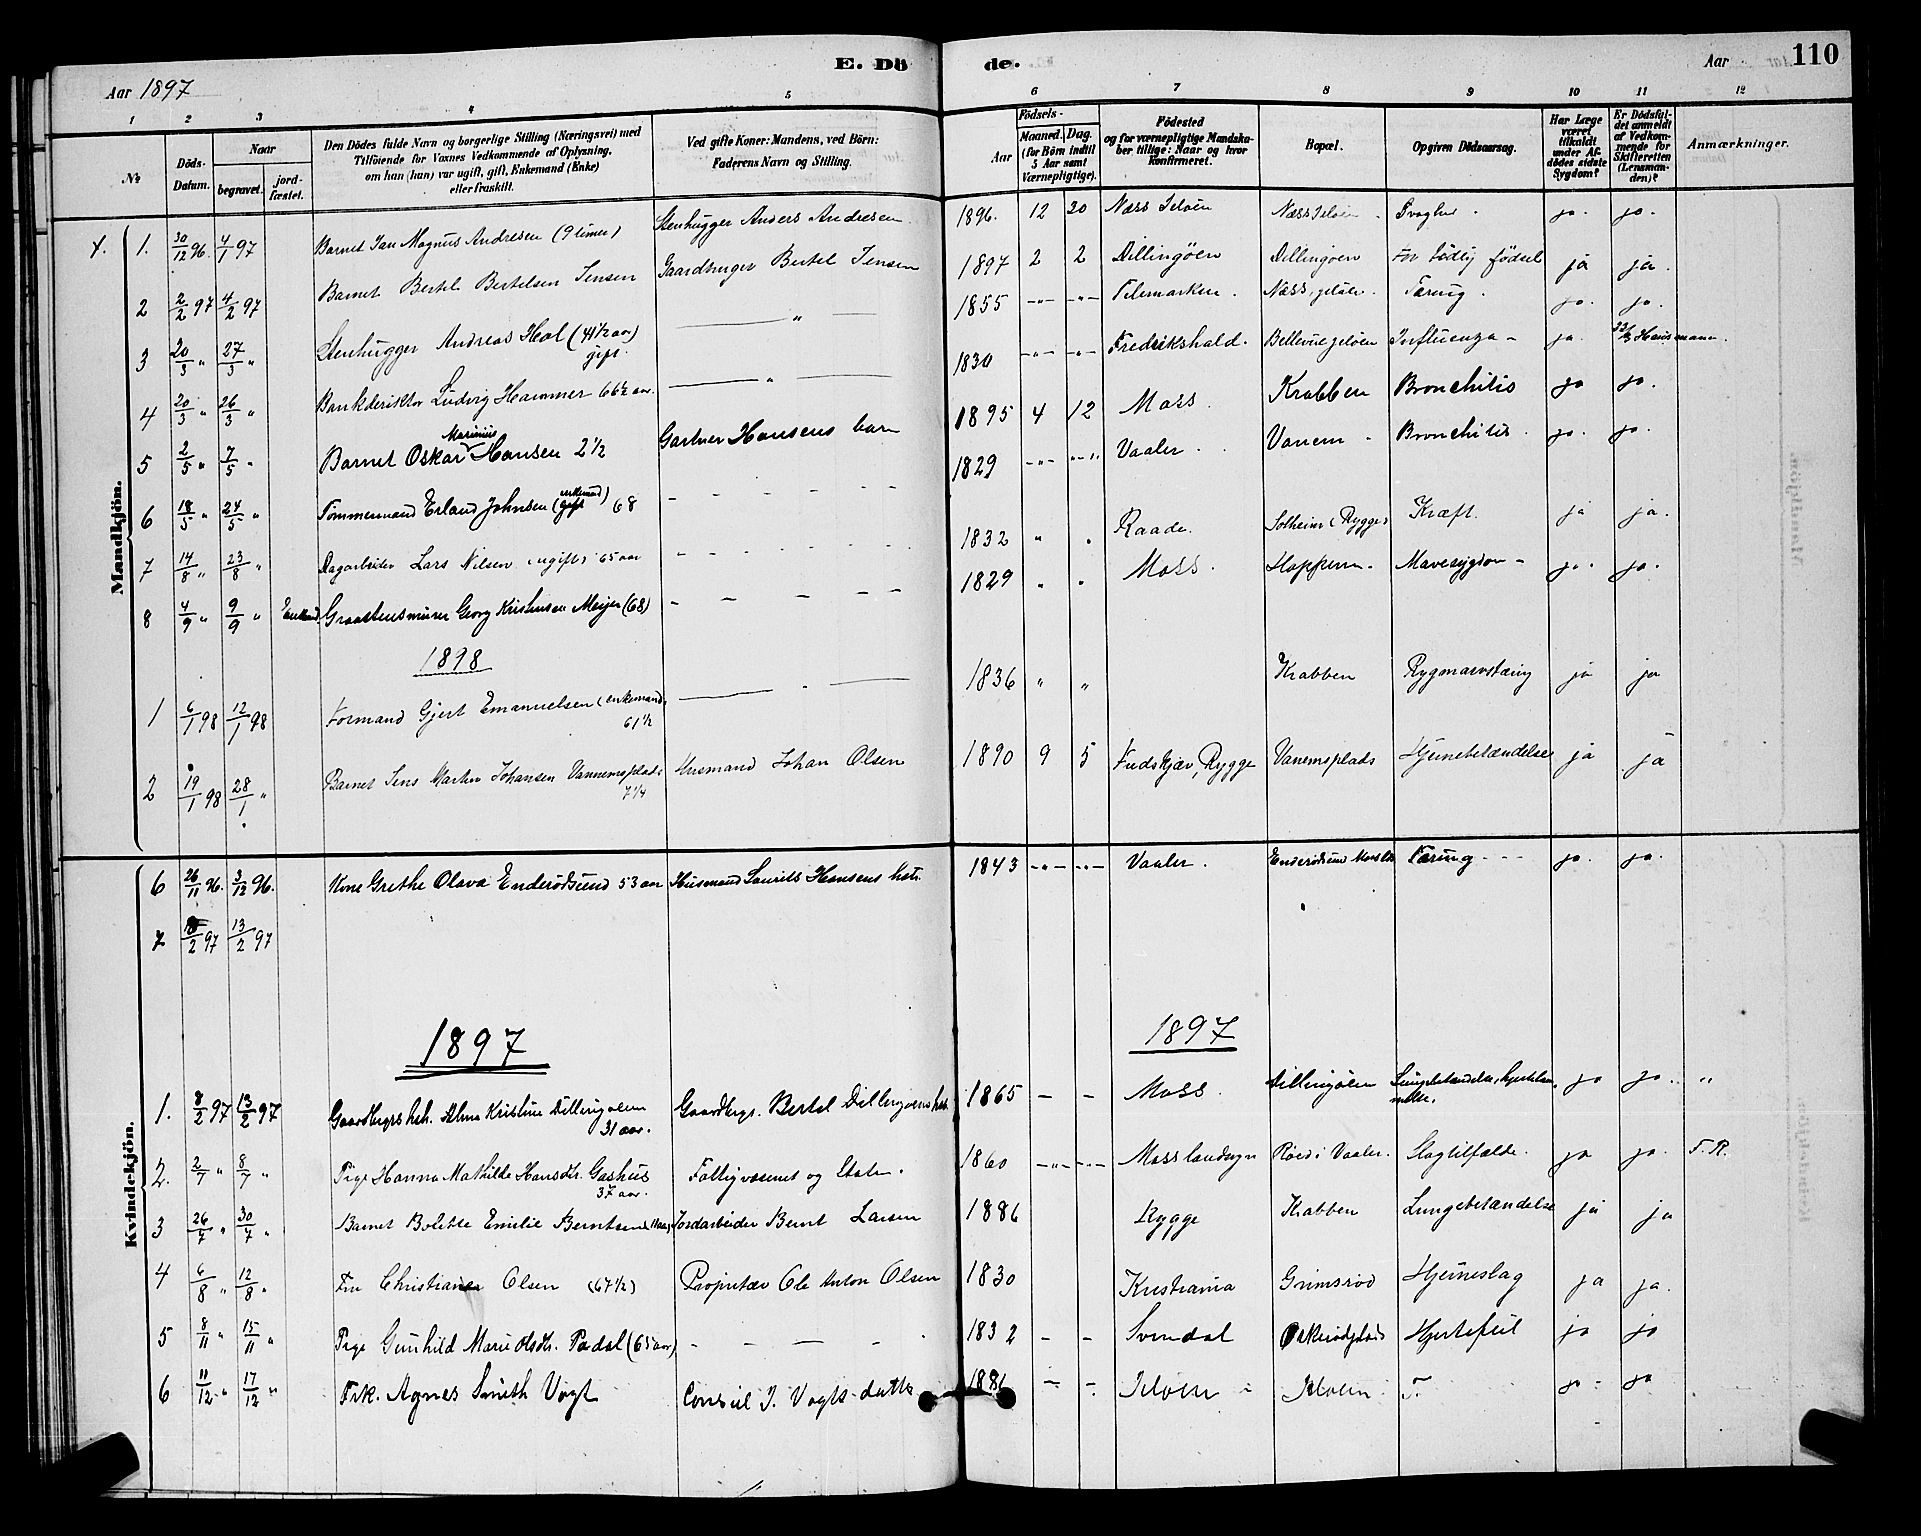 E. Döde.
110
Aar 1897
Aar
1 2 3 4 5 6 7 8 9 10 11 12
№
Döds-Datum.
Naar
begravet.
jord-fæstet.
Den Dödes fulde Navn og borgerlige Stilling (Næringsvei) med
Tilföiende for Voxnes Vedkommende af Oplysning,
om han (hun) var ugift, gift, Enkemand (Enke)
eller fraskilt.
Ved gifte Koner: Mandens, ved Börn:
Faderens Navn og Stilling.
Födsels-
Aar
Maaned. Dag.
(for Börn indtil
5 Aar samt
Værnepligtige).
Födested
og for værnepligtige Mandska-
ber tillige: Naar og hvor
Konfirmeret.
Bopæl.
Opgiven Dödsaarsag.
Har Læge
været
tilkaldt
under Af-
dödes sidste
Sygdom?
Er Dödsfal-
det anmeldt
af Vedkom-
mende for
Skifteretten
(Lensman-
den)?
Anmærkninger.
Mandkjön.
1. 30/12 96. 4/1 97 Barnet Jan Magnus Andresen (9 timer) Stenhugger Anders Andresen 1896. 12 30 Næss Jeløen Næss Jeløen Svaghed. ja. ja.
2 2/2 97 4/2 97 Barnet Bertil Bertelsen Jensen Gaardbruger Bertel Jensen 1897 2 2 Dillingøen Dillingøen For tidlig födsel ja ja.
3 20/3 " 27/3 " Stenhugger Andreas Hol (41 1/2 aar) gift. " 1855 -"- -"- Telemarken. Næss, Jeløen. Tæring. ja. ja.
4 20/3 " 26/3 " Bankdirektør Ludvig Hammer 66 1/2 aar. " 1830 -"- -"- Fredrikshald. Bellevue Jeløen Influenza - ja. Hausmann.
5 2/5 " 7/5 " Barnet Oskar Marinius Hansen 2 1/2 Gartner Hansens barn 1895 4 12 Moss. Krabben Bronchitis ja ja.
6 18/5 " 24/5 " Tømmermand Erland Johnsen (gift enkemand) 68 - - - - - - 1829 -"- -"- Vaaler. Vanem - Bronchitis. ja. ja.
7 14/8 " 23/8 " Dagarbeider Lars Nilsen (ugift) 65 aar - - - - - - 1832 " . Raade. Solheim (Rygge) Kræft. ja ja.
8 4/9 " 9/9 " Enkemand Graastensmurer Georg Kristensen Meyer (68) - - - - - 1829 . . Moss. Hoppern. Mavesygdom - ja. ja.
1898
1 6/1 98 12/1 98 Formand Gjert Emanuelsen (enkemand) 61 1/2 1836 " " Krabben Rygmarvstæring ja ja
2 19/1 98 28/1 " Barnet Jens Martin Johansen Vannemsplads 7 1/4 Husmand Johan Olsen 1890 9 5 Fudskjær, Rygge Vanemsplads Hjernebetændelse ja ja
Kvindekjön.
6 26/11 96. 3/12 96. Kone Grethe Olava Enderødsund 53 aar Husmand Laurits Hansens hstr. 1843 -"- -"- Vaaler. Enderødsund Moss Tæring - - - ja. ja.
7 18/2 97 13/2 97
1897
1897
1. 8/2 97 13/2 97 Gaardbrgrs hstr. Alma Kristine Dillingøen 31 aar. Gaardbrgr. Bertel Dillingøens hstr. 1865 - - Moss. Dillingøen Lungebetændelse, ja ja.. "
2. 2/7 " 8/7 " Pige Hanna Mathilde Hansdtr. Gashus 37 aar. Fattigvæsenet og Staten. 1860 -"- -"- Moss landsogn Røed i Vaaler. Slagtilfælde. ja ja. T.R.
3 26/7 " 30/7 " Barnet Bolette Emilie Berntsen (11 aar) Jordarbeider Bernt Larsen 1886 Rygge Krabben Lungebetændelse ja ja
4 6/8 " 12/8 " Fru Christiane Olsen (67 1/2) Proprietær Ole Anton Olsen 1830 Kristiania Grimsrød Hjerneslag ja ja.
5 8/11 " 15/11 " Pige Gunhild Marie Olsdtr. Rødal (65 aar) - - - - 1832 - - Svindal Orkerødplads Hjertefeil ja ja
6 11/12 " 17/12 " Frk. Agnes Smith Vogt Consul J. Vogts datter 1881 - - Jeløen - Jeløen. T. ja - ja